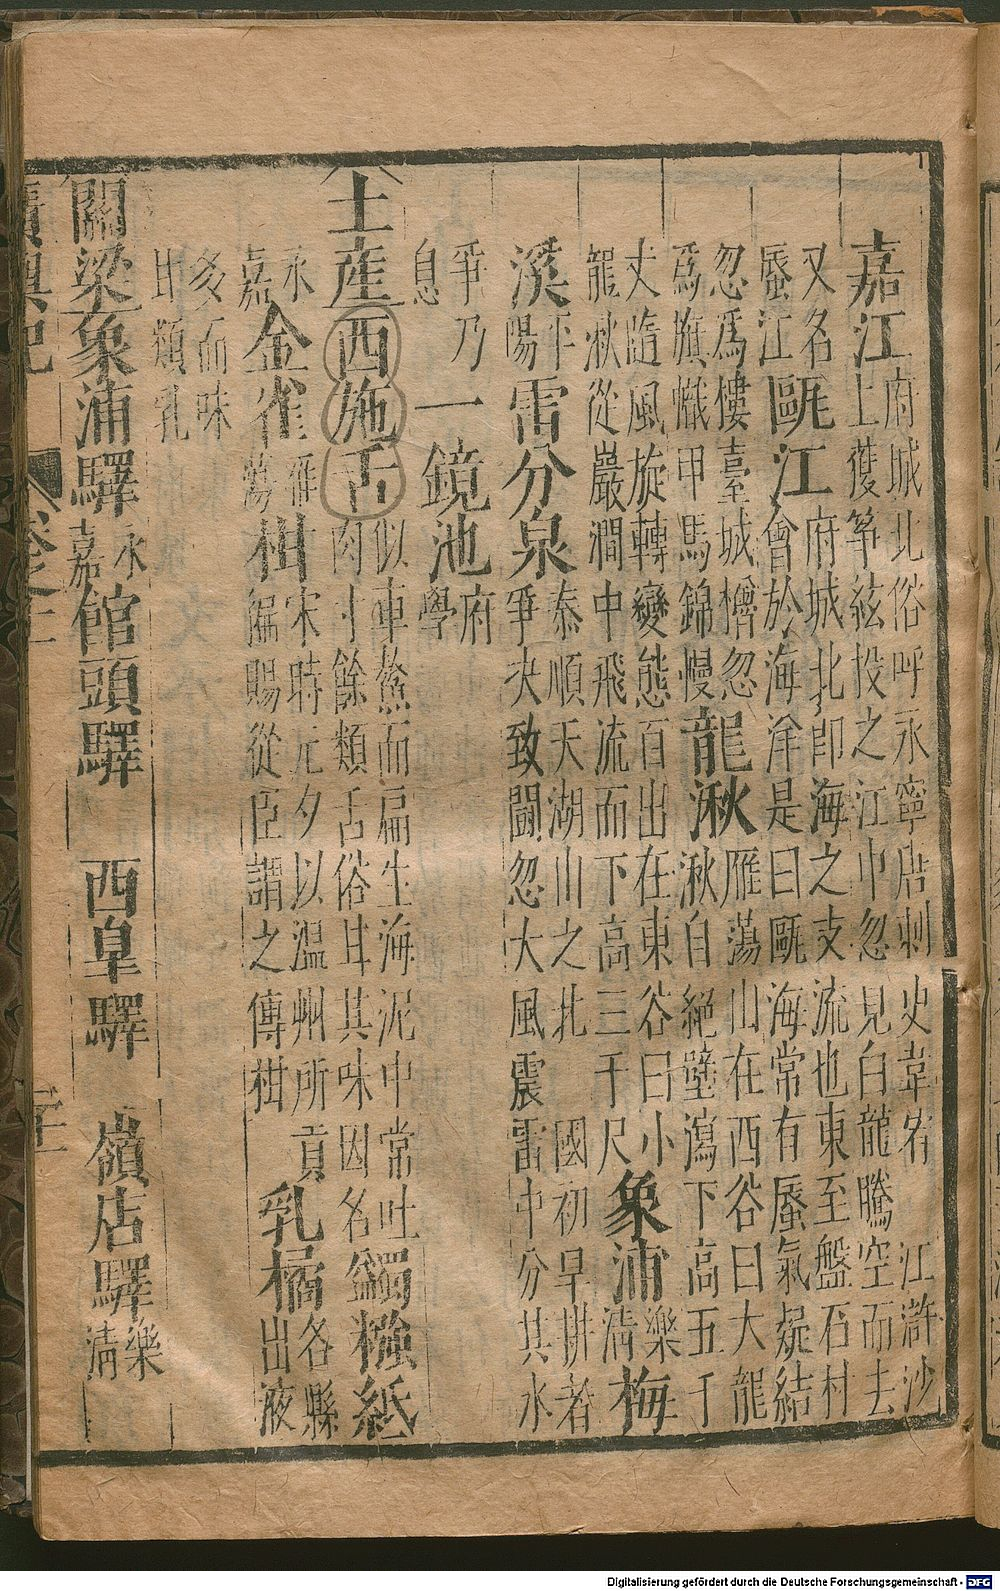 嘉江府城北俗呼永寧唐刺史韋宥江滸沙
上獲箏絃投之江中忽見白龍騰空而去
又名蜃江甌江府城北卽海之支流也東至盤石村
會於海洋是曰甌海常有蜃氣凝結
忽爲樓臺城櫓忽
爲旗幟甲馬錦幔龍湫雁蕩山在西谷曰大龍
湫自絕壁瀉下高五千
丈隨風旋轉變態百出在東谷曰小
龍湫從巖澗中飛流而下高三千尺象浦樂清梅
溪平陽雷分泉泰順天湖山之北國初旱耕者
爭決致鬬忽大風震雷中分其水
爭乃
息一鏡池府學
土產西施舌似車螯而扁生海泥中常吐
肉寸餘類舌俗甘其味因名蠲糨紙
永嘉金雀雁蕩柑宋時元夕以溫州所貢
徧賜從臣謂之傳柑乳橘各縣出液
多而味
甘類乳
關梁象浦驛永嘉館頭驛 西皐驛 嶺店驛樂清
廣輿記 卷之十一
Digitalisierung gefördert durch die Deutsche Forschungsgemeinschaft - DFG